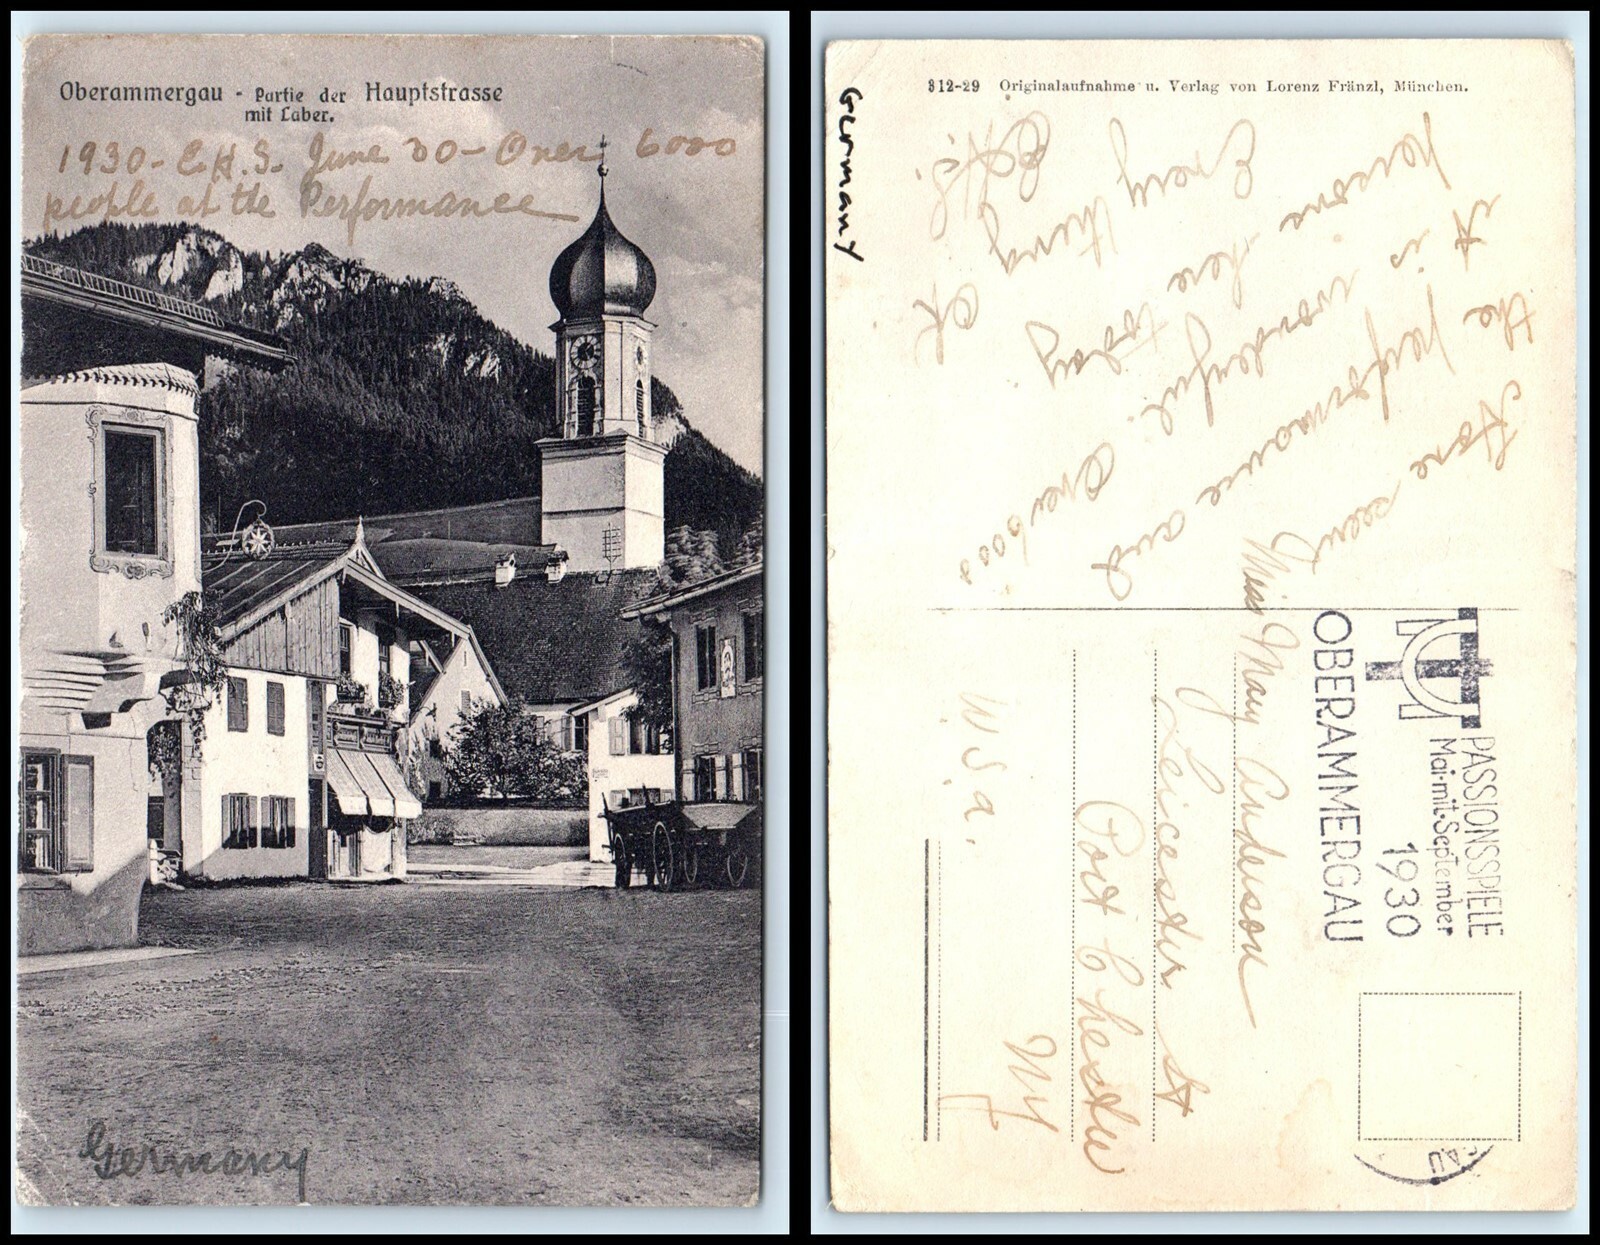 Oberammergau - Partie der Hauptstrasse
mit Laber.
1930 - E.H.S. June 30 - Over 6000
people at the Performance
Germany
Germany
312-29 Originalaufnahme u. Verlag von Lorenz Fränzl, München.
Have seen
the performance and
it is wonderful. Over 6000
persone here today
Every thing OK
EHS.
PASSIONSSPIELE
Mai mit September
1930
OBERAMMERGAU
Miss Mary Anderson
Leicester St
Port Chester
NY
U.S.A.
GAU